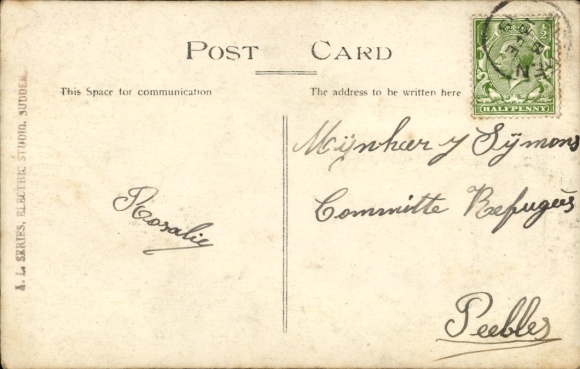 POST CARD
This Space for communication
The address to be written here
HALFPENNY
A. L. SERIES, ELECTRIC STUDIO,
Rosalie
Mijnheer J Sijmons
Committe Refugees
Peebles